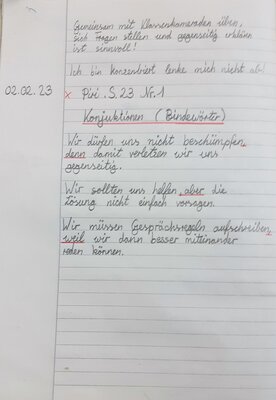 Gemeinsam mit Klassenkameraden üben,
sich Fragen stellen und gegenseitig erklären
ist sinnvoll!
Ich bin konzentriert lenke mich nicht ab!
02.02.23 x Piri S.23 Nr.1
Konjuktionen (Bindewörter)
Wir dürfen uns nicht beschümpfen,
denn damit verletzen wir uns
gegenseitig.
Wir sollten uns helfen, aber die
Lösung nicht einfach vorsagen.
Wir müssen Gesprächsregeln aufschreiben,
weil wir dann besser miteinander
reden können.